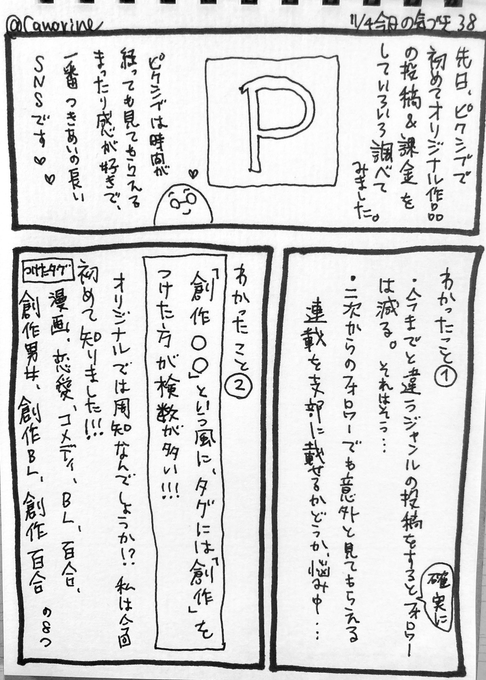 @Canorine
11/4今日の気づき38
先日、ピクシブで
初めてオリジナル作品
の投稿&課金を
していろいろ調べて
みました。
P
ピクシブは時間が
経っても見てもらえる
まったり感が好きで、
一番つきあいの長い
SNSです♥♥
わかったこと①
・今までと違うジャンルの投稿をするとフォロワー
は減る。それはそう…
確実に
・二次からのフォロワーでも意外と見てもらえる
連載を支部に載せるかどうか、悩み中…
わかったこと②
「創作〇〇」という風に、タグには「創作」を
つけた方が検数が多い!!!
オリジナルでは周知なんでしょうか!?私は今回
初めて知りました!!!
つけたタグ
漫画、恋愛、コメディ、BL、百合、
創作男女、創作BL、創作百合の8つ